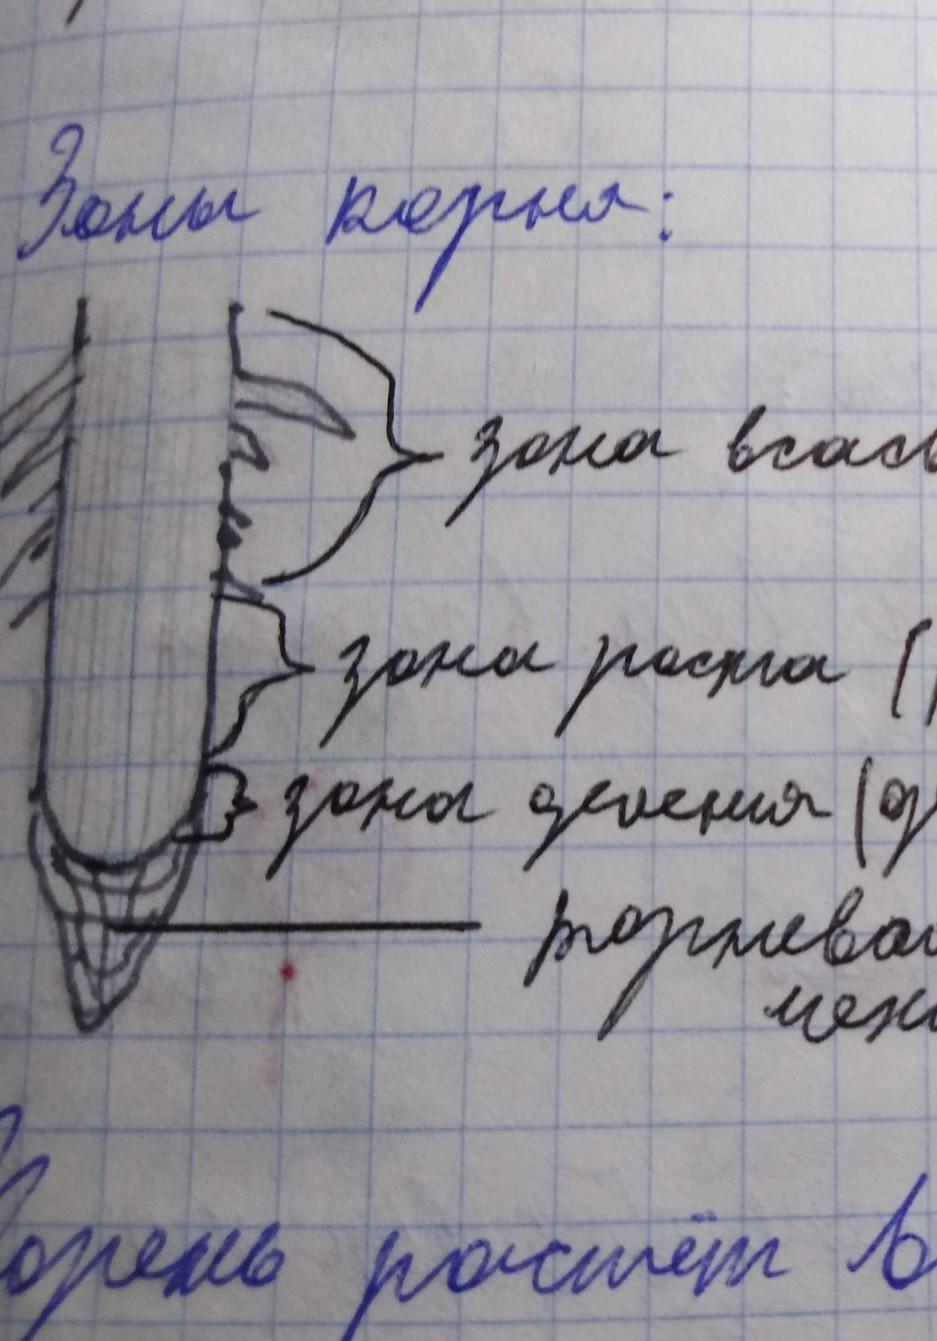 Зоны корня:
зона всась
зона роста (р
зона деления (д
корневой
чехл
Корень растёт в